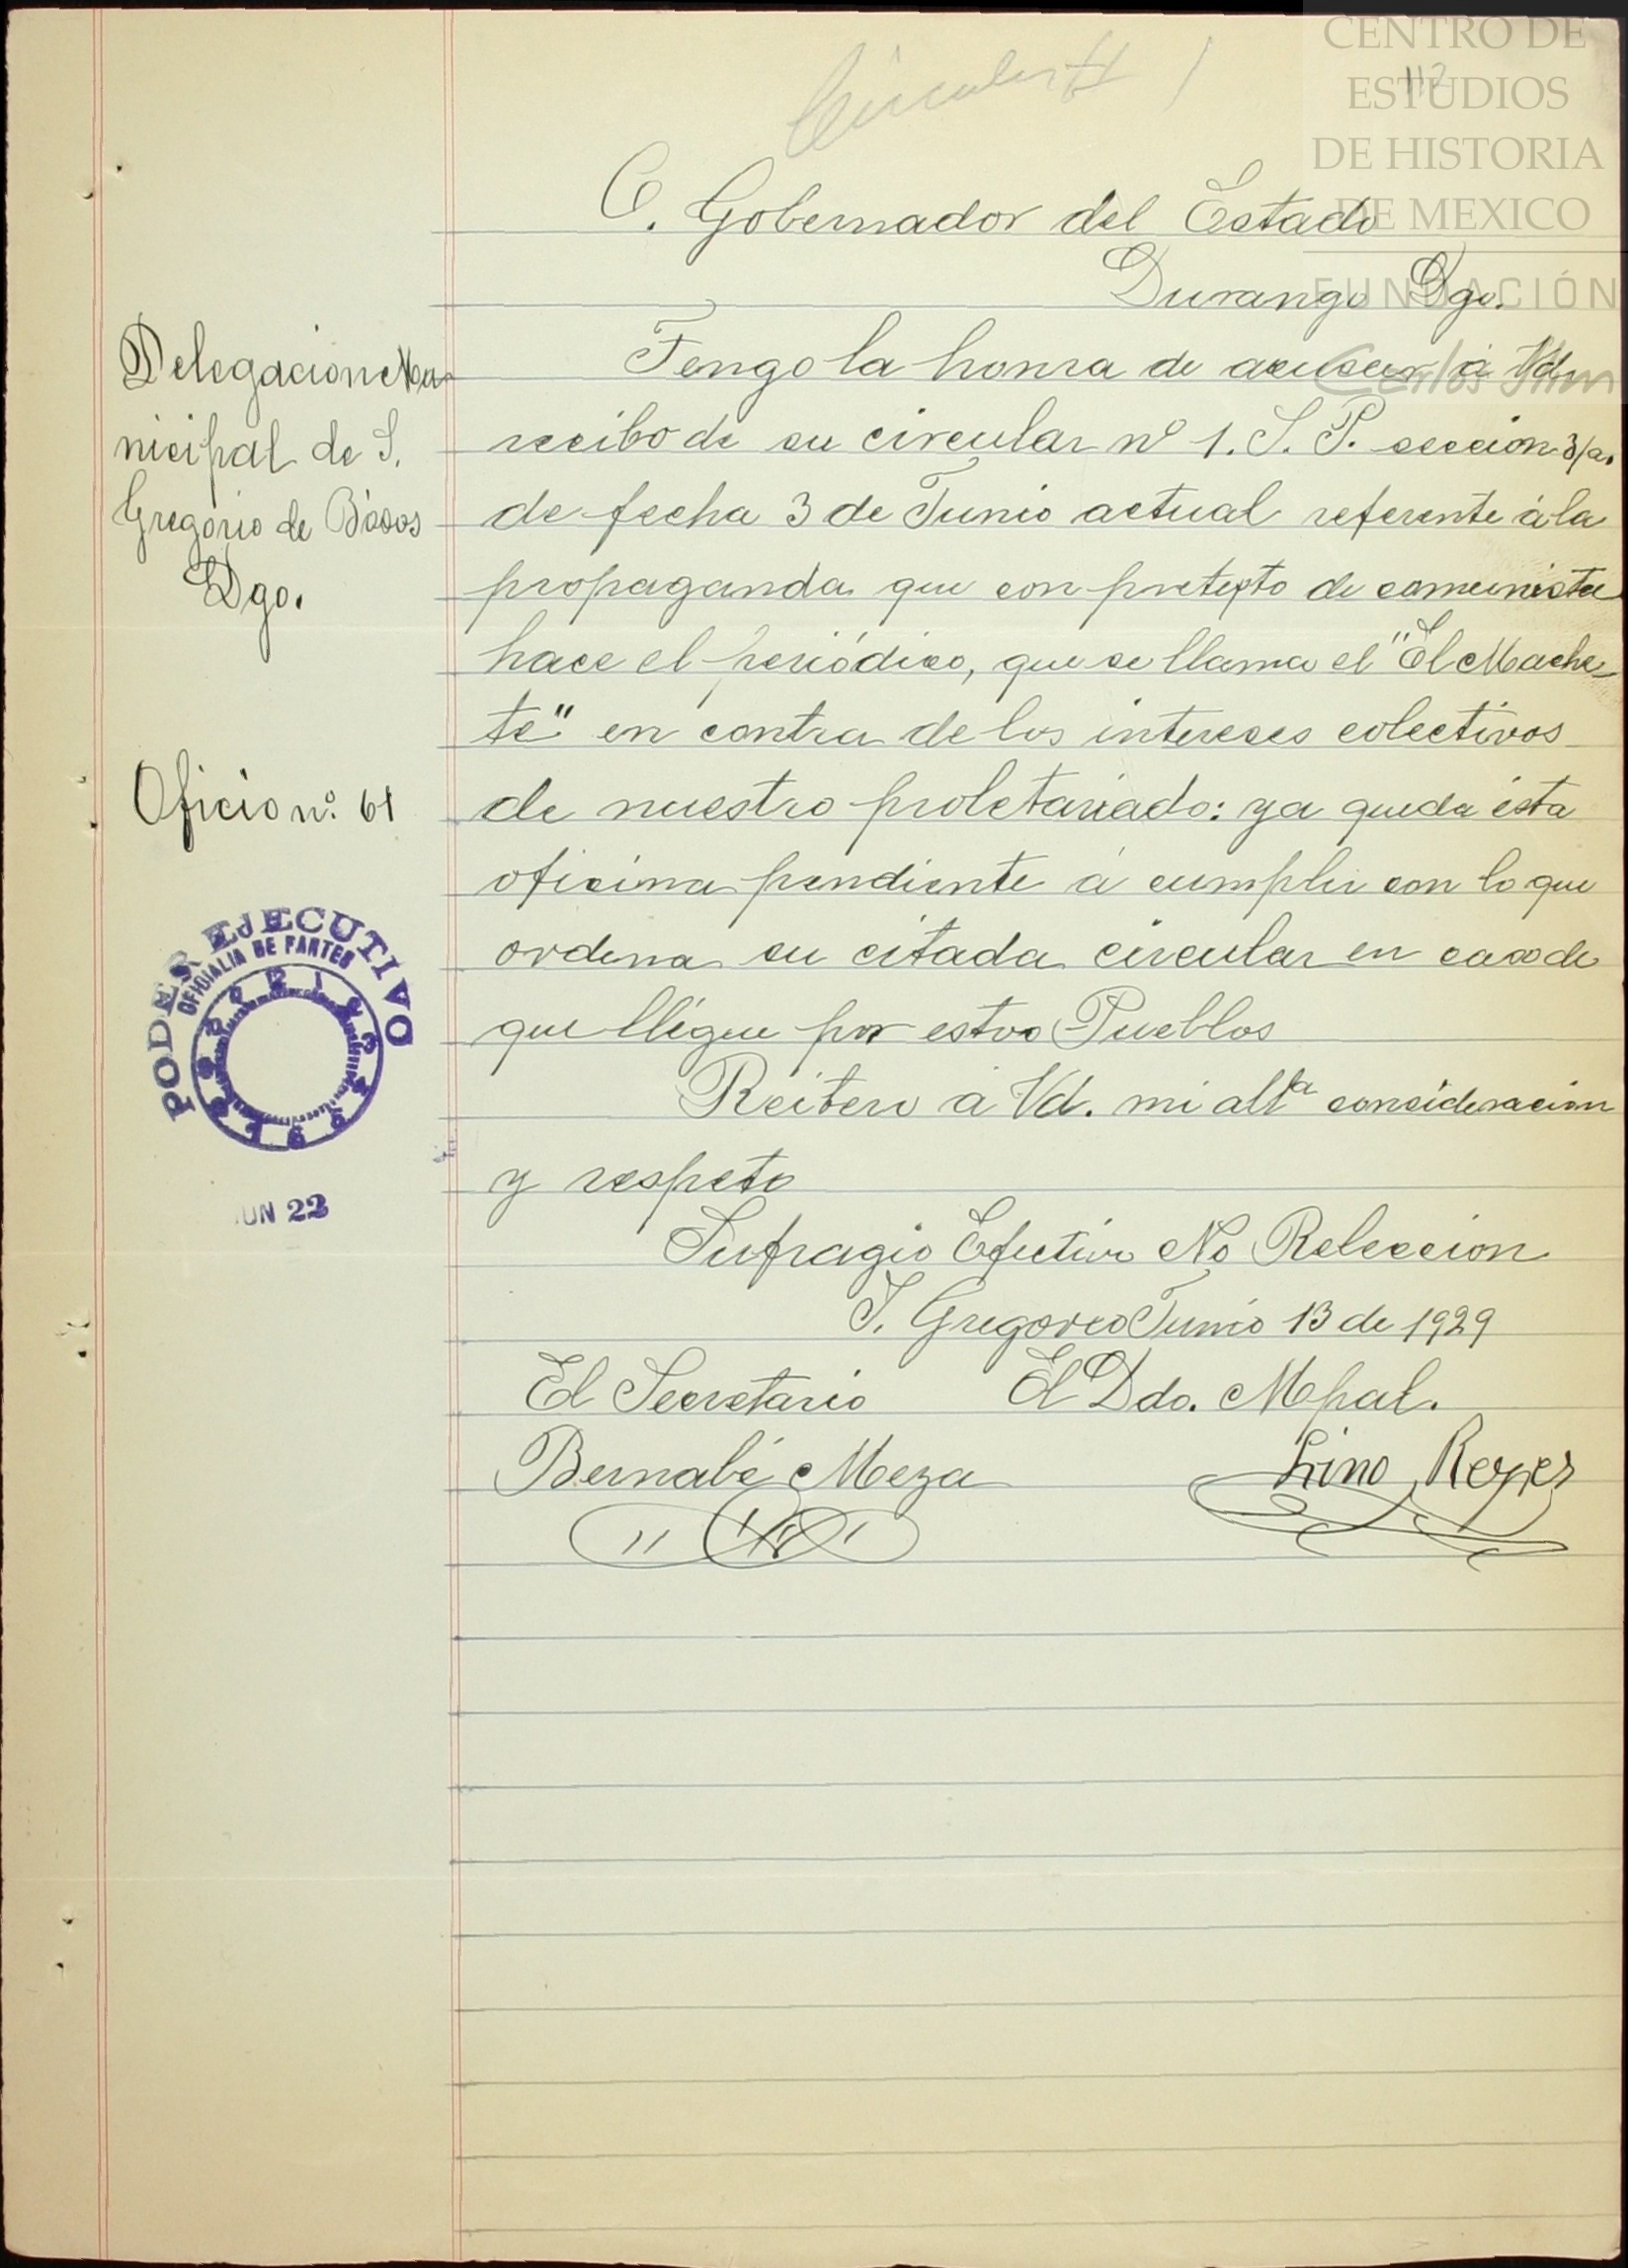 Circular # 1
112
CENTRO DE
ESTUDIOS
DE HISTORIA
DE MEXICO
FUNDACIÓN
Carlos Slim
C. Gobernador del Estado
Durango Dgo.
Delegacion Mu
nicipal de S.
Gregorio de Bósos
Dgo.
Oficio nº. 61
PODER EJECUTIVO
OFICIALIA DE PARTES
JUN 22
Tengo la honra de acusar á Vd.
recibo de su circular nº 1. S. P. seccion 3/a.
de fecha 3 de Junio actual referente á la
propaganda que con pretexto de comunista
hace el periódico, que se llama el "El Mache
te" en contra de los intereses colectivos
de nuestro proletariado: ya queda ésta
oficina pendiente á cumplir con lo que
ordena su citada circular en caso de
que llégue por estos Pueblos
Reitero á Vd. mi altª consideracion
y respeto
Sufragio Efectivo No Releccion
S. Gregorio Junio 13 de 1929
El Secretario El Ddo. Mpal.
Bernabé Meza Lino Reyes